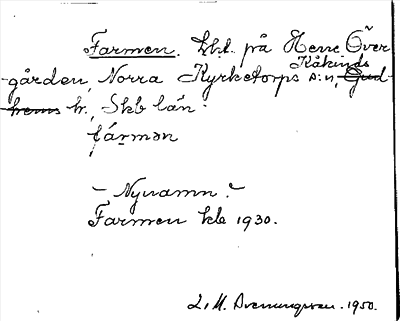 Farmen. Lht. på Herre Över
Kåkinds
gården, Norra Kyrketorps s:n, Gud-
hems hr., Skb län.
fármən
– Nynamn. –
Farmen kb 1930.
L. M. Svenungsson. 1950.